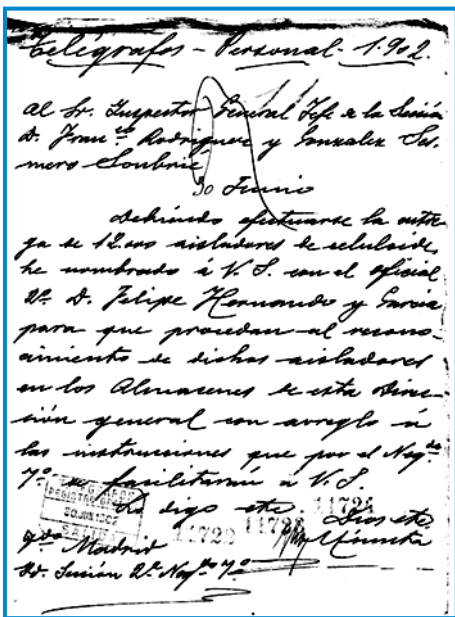 Telégrafos - Personal - 1.902.
Al Sr. Inspector General Jefe de la Sección
D. Fran.co Rodriguez y Gonzalez Ses-
mero Soubrié
30 Junio
Debiendo efectuarse la entre-
ga de 12.000 aisladores de celuloide,
he nombrado á V. S. con el oficial
2º. D. Felipe Hernando y Garcia
para que procedan al recono-
cimiento de dichos aisladores
en los Almacenes de esta Direc-
ción general con arreglo á
las instrucciones que por el Neg.do
7º se facilitarán á V. S.
REGISTRO
30 JUN 1902
SALIDA
Lo digo etc. Dios etc
11722 11723 11724
Madrid
2ª Neg.do 7º